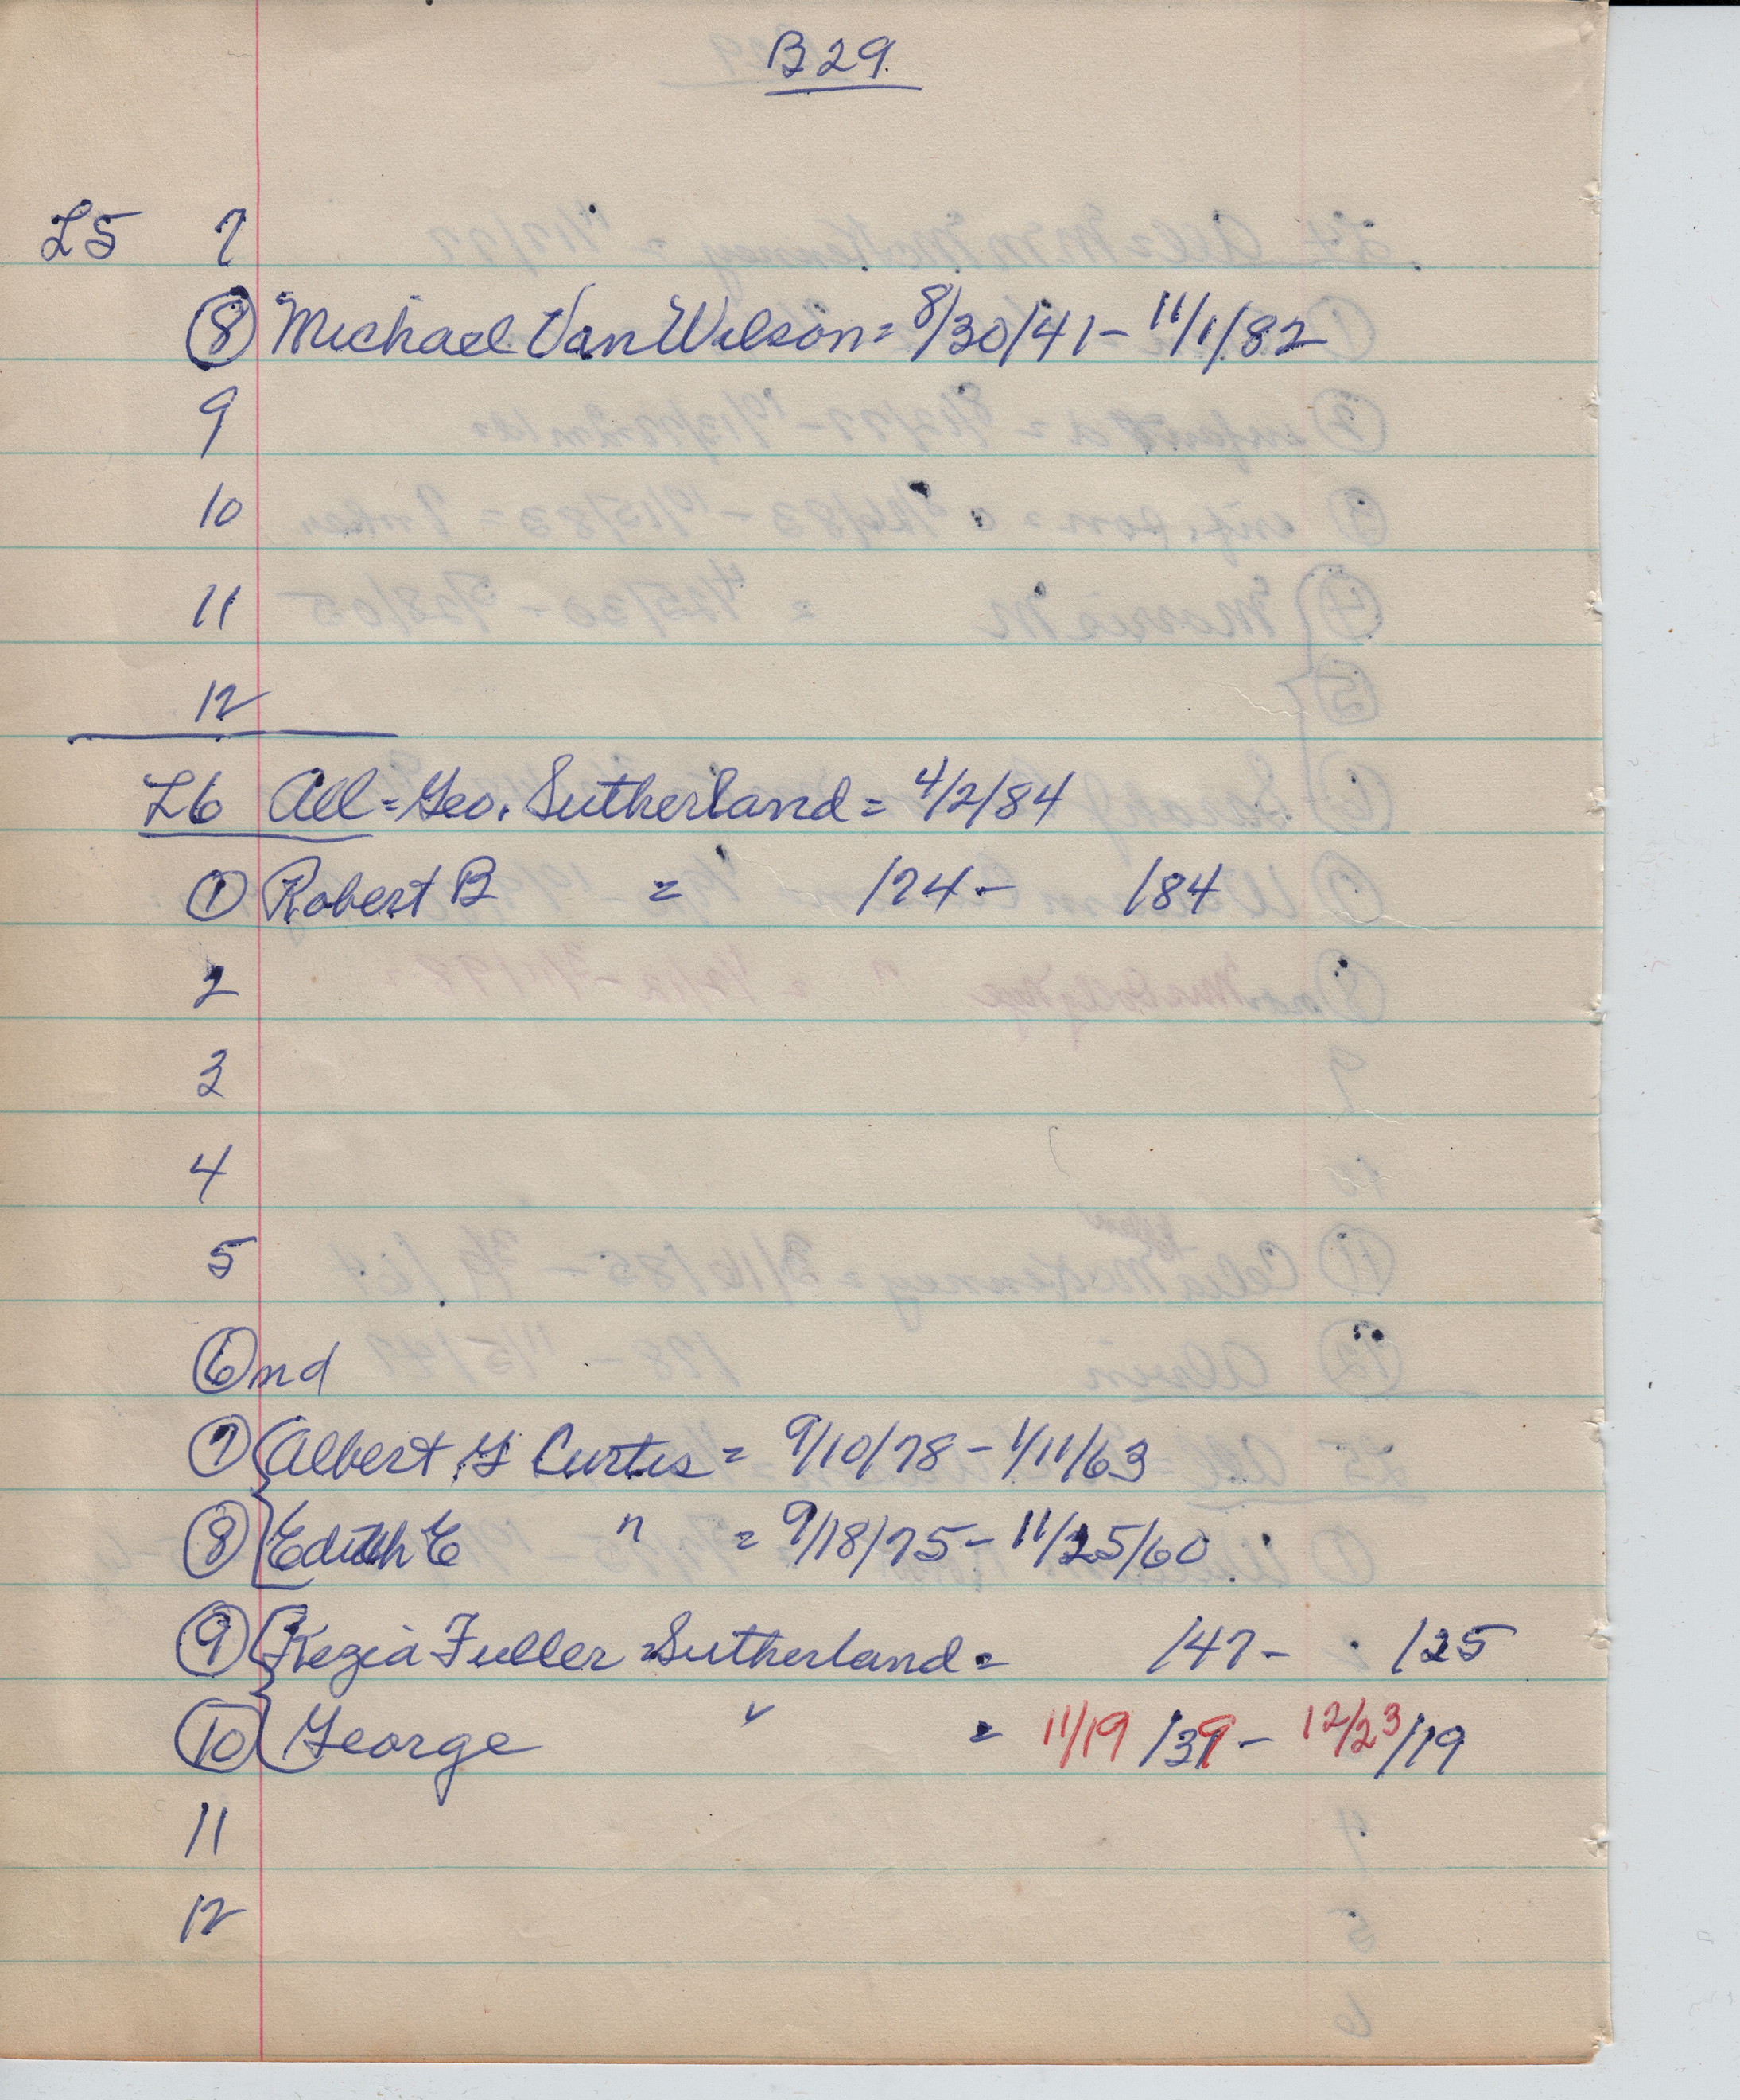 B29.
L5 7
8 Michael Van Wilson = 8/30/41 - 11/1/82
9
10
11
12
L6 All = Geo. Sutherland = 4/2/84
1 Robert B = /74 - /84
2
3
4
5
6 nd
7 Albert G Curtis = 9/10/78 - 1/11/63
8 Edith E " = 9/18/75 - 11/25/60
9 Kezia Fuller Sutherland = /47 - /25
10 George " = 11/19/39 - 12/23/19
11
12